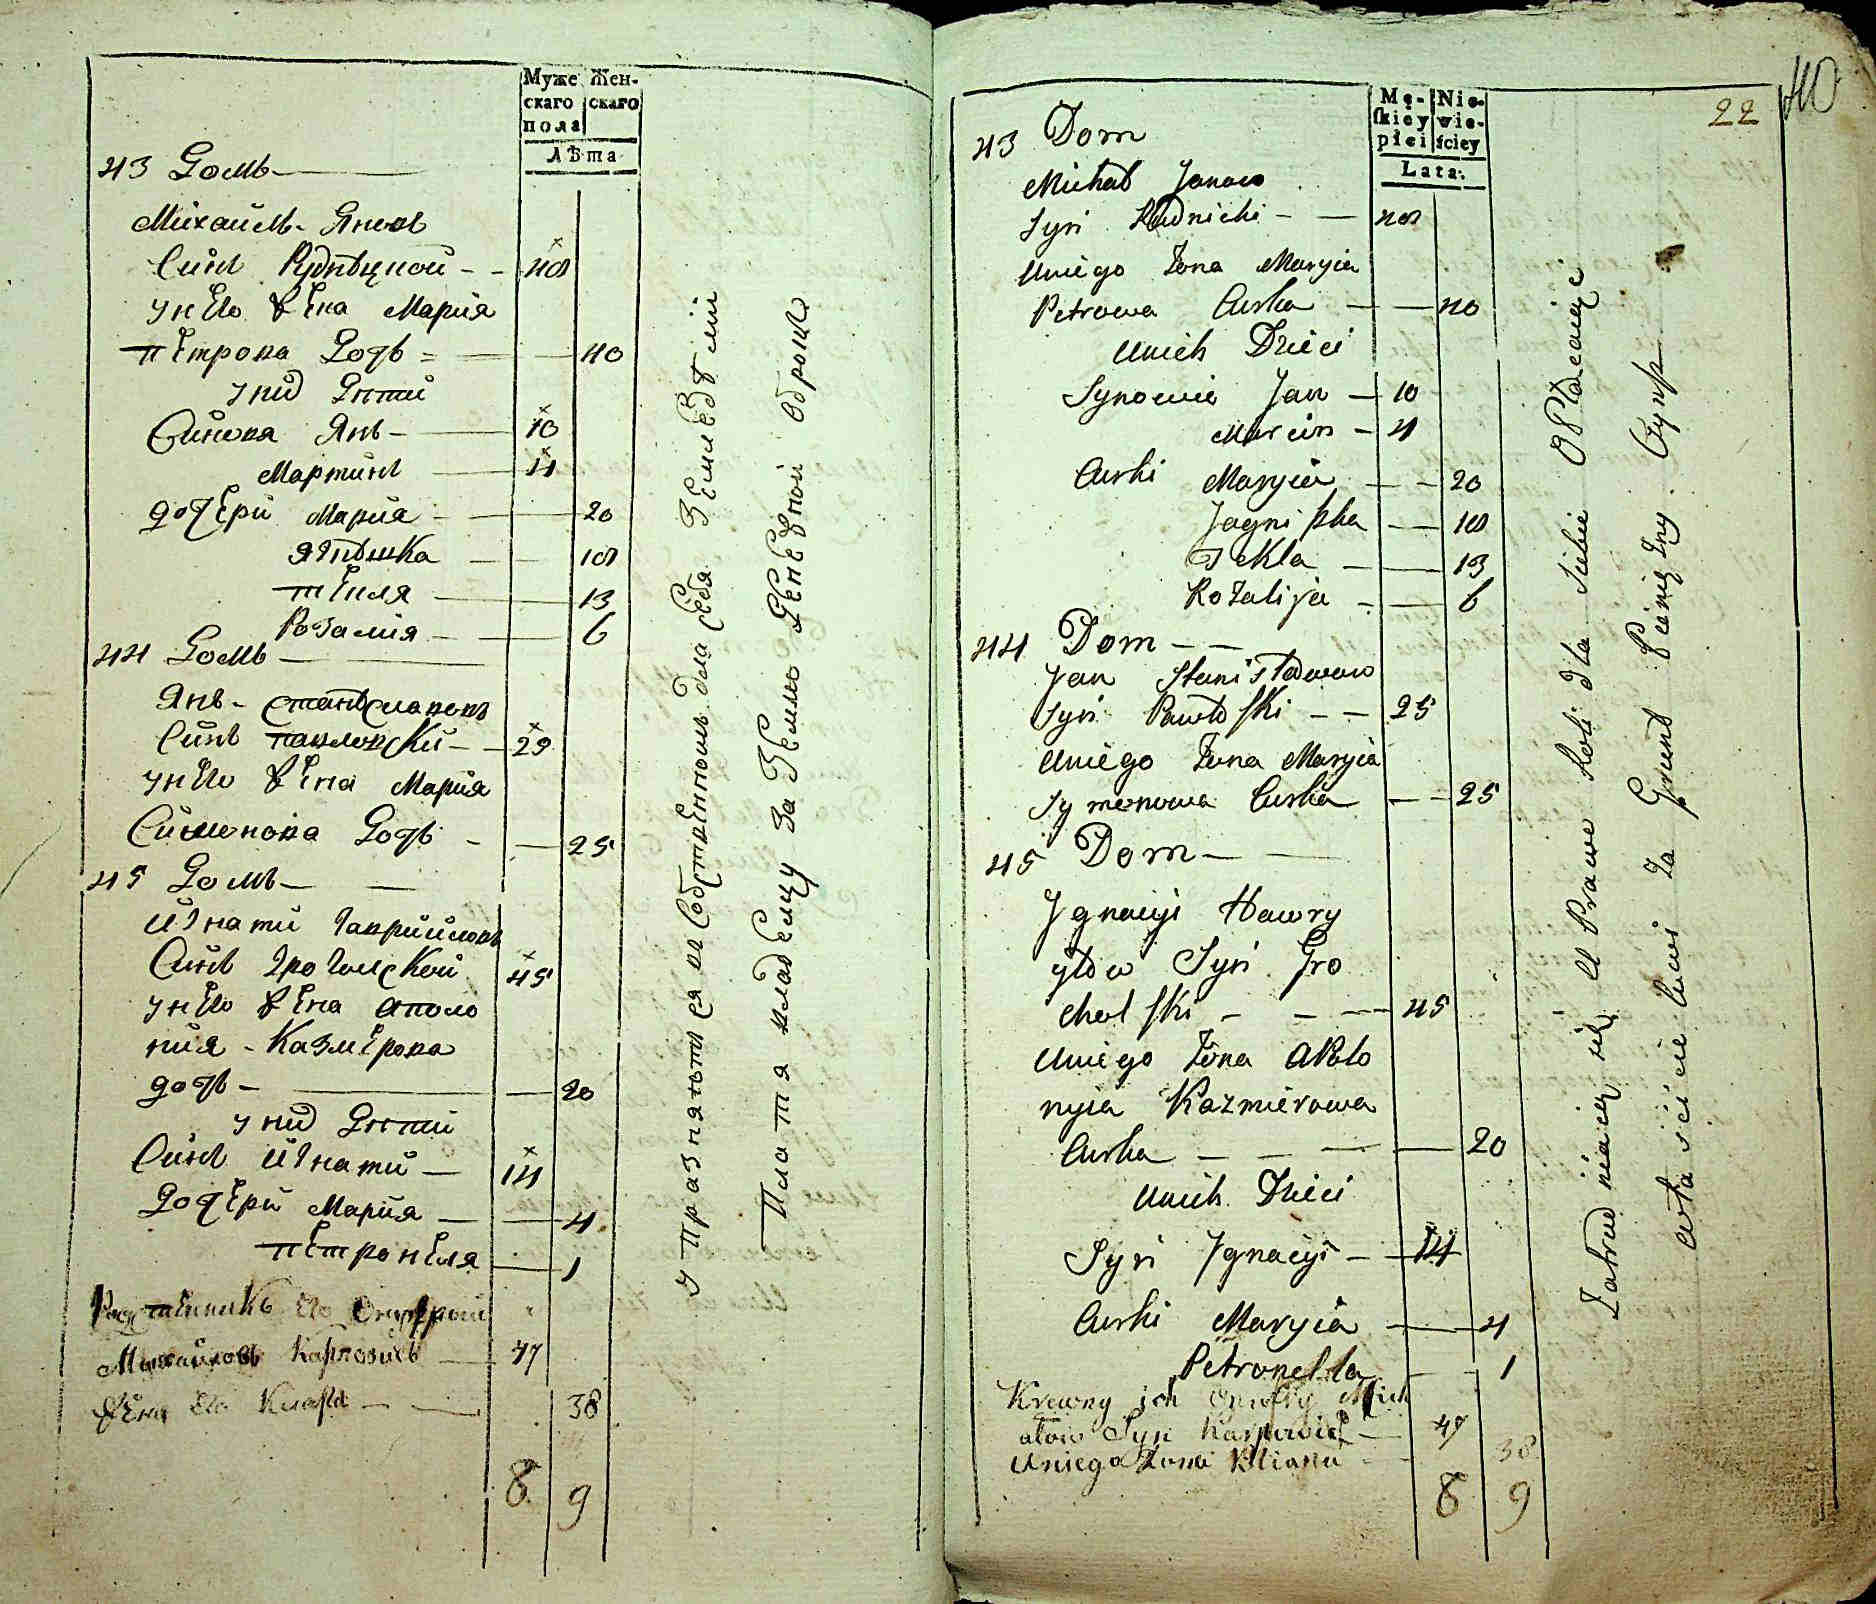 Муже Жен-
скаго скаго
пола
Лѣта
43 Домъ
Михайлъ Яновъ
Синъ Рудницкой 48
у него жена Мария
петрова дочь 40
у них дѣти
Синовя Янъ 10
Мартинъ 4
дочери Мария 20
Ягнѣшка 18
текля 13
Розалия 6
44 Домъ
Янъ станиславовъ
Синъ павловски 29
у него жена Мария
Симонова дочь 25
45 Домъ
Игнати Гаврийловъ
Синъ Грогольской 45
у него жена аполо
ния Казмерова
дочь 20
у них дѣти
Синъ Игнати 14
дочери Мария 4
петронеля 1
его Онуфрий
Михайловъ Карповичъ 47
жена его 38
8 9
упразняются въ собственномъ для себя земледелии
Платя владелцу за землю денежной оброкъ
22 40
Mę- Nie-
ſkiey wie-
płci ściey
Lata.
43 Dom
Michał Janow
Syn Rudnicki 48
Uniego Żona Maryia
Petrowa Curka 40
Unich Dzieci
Synowie Jan 10
Marcin 4
Curki Maryia 20
Jagniszka 18
Tekla 13
Rozalija 6
44 Dom
Jan Stanisławow
Syn Pawłoſki 25
Uniego Żona Maryia
Symonowa Curka 25
45 Dom
Jgnacyi Hawry
yłow Syn Gro
cholſki 45
Uniego Żona Apolo
nyia Kazmierowa
Curka 20
Unich Dzieci
Syn Jgnacyi 14
Curki Maryia 4
Petronella 1
Krewny ich Onufry Mich
ałow Syn Karpowicz 47
Uniego Żona 38
8 9
Zatrudniaią się U Prawie Roli dla Siebie Opłacaiąc
właścicielowi Za Grunt Pieniężny Czynsz